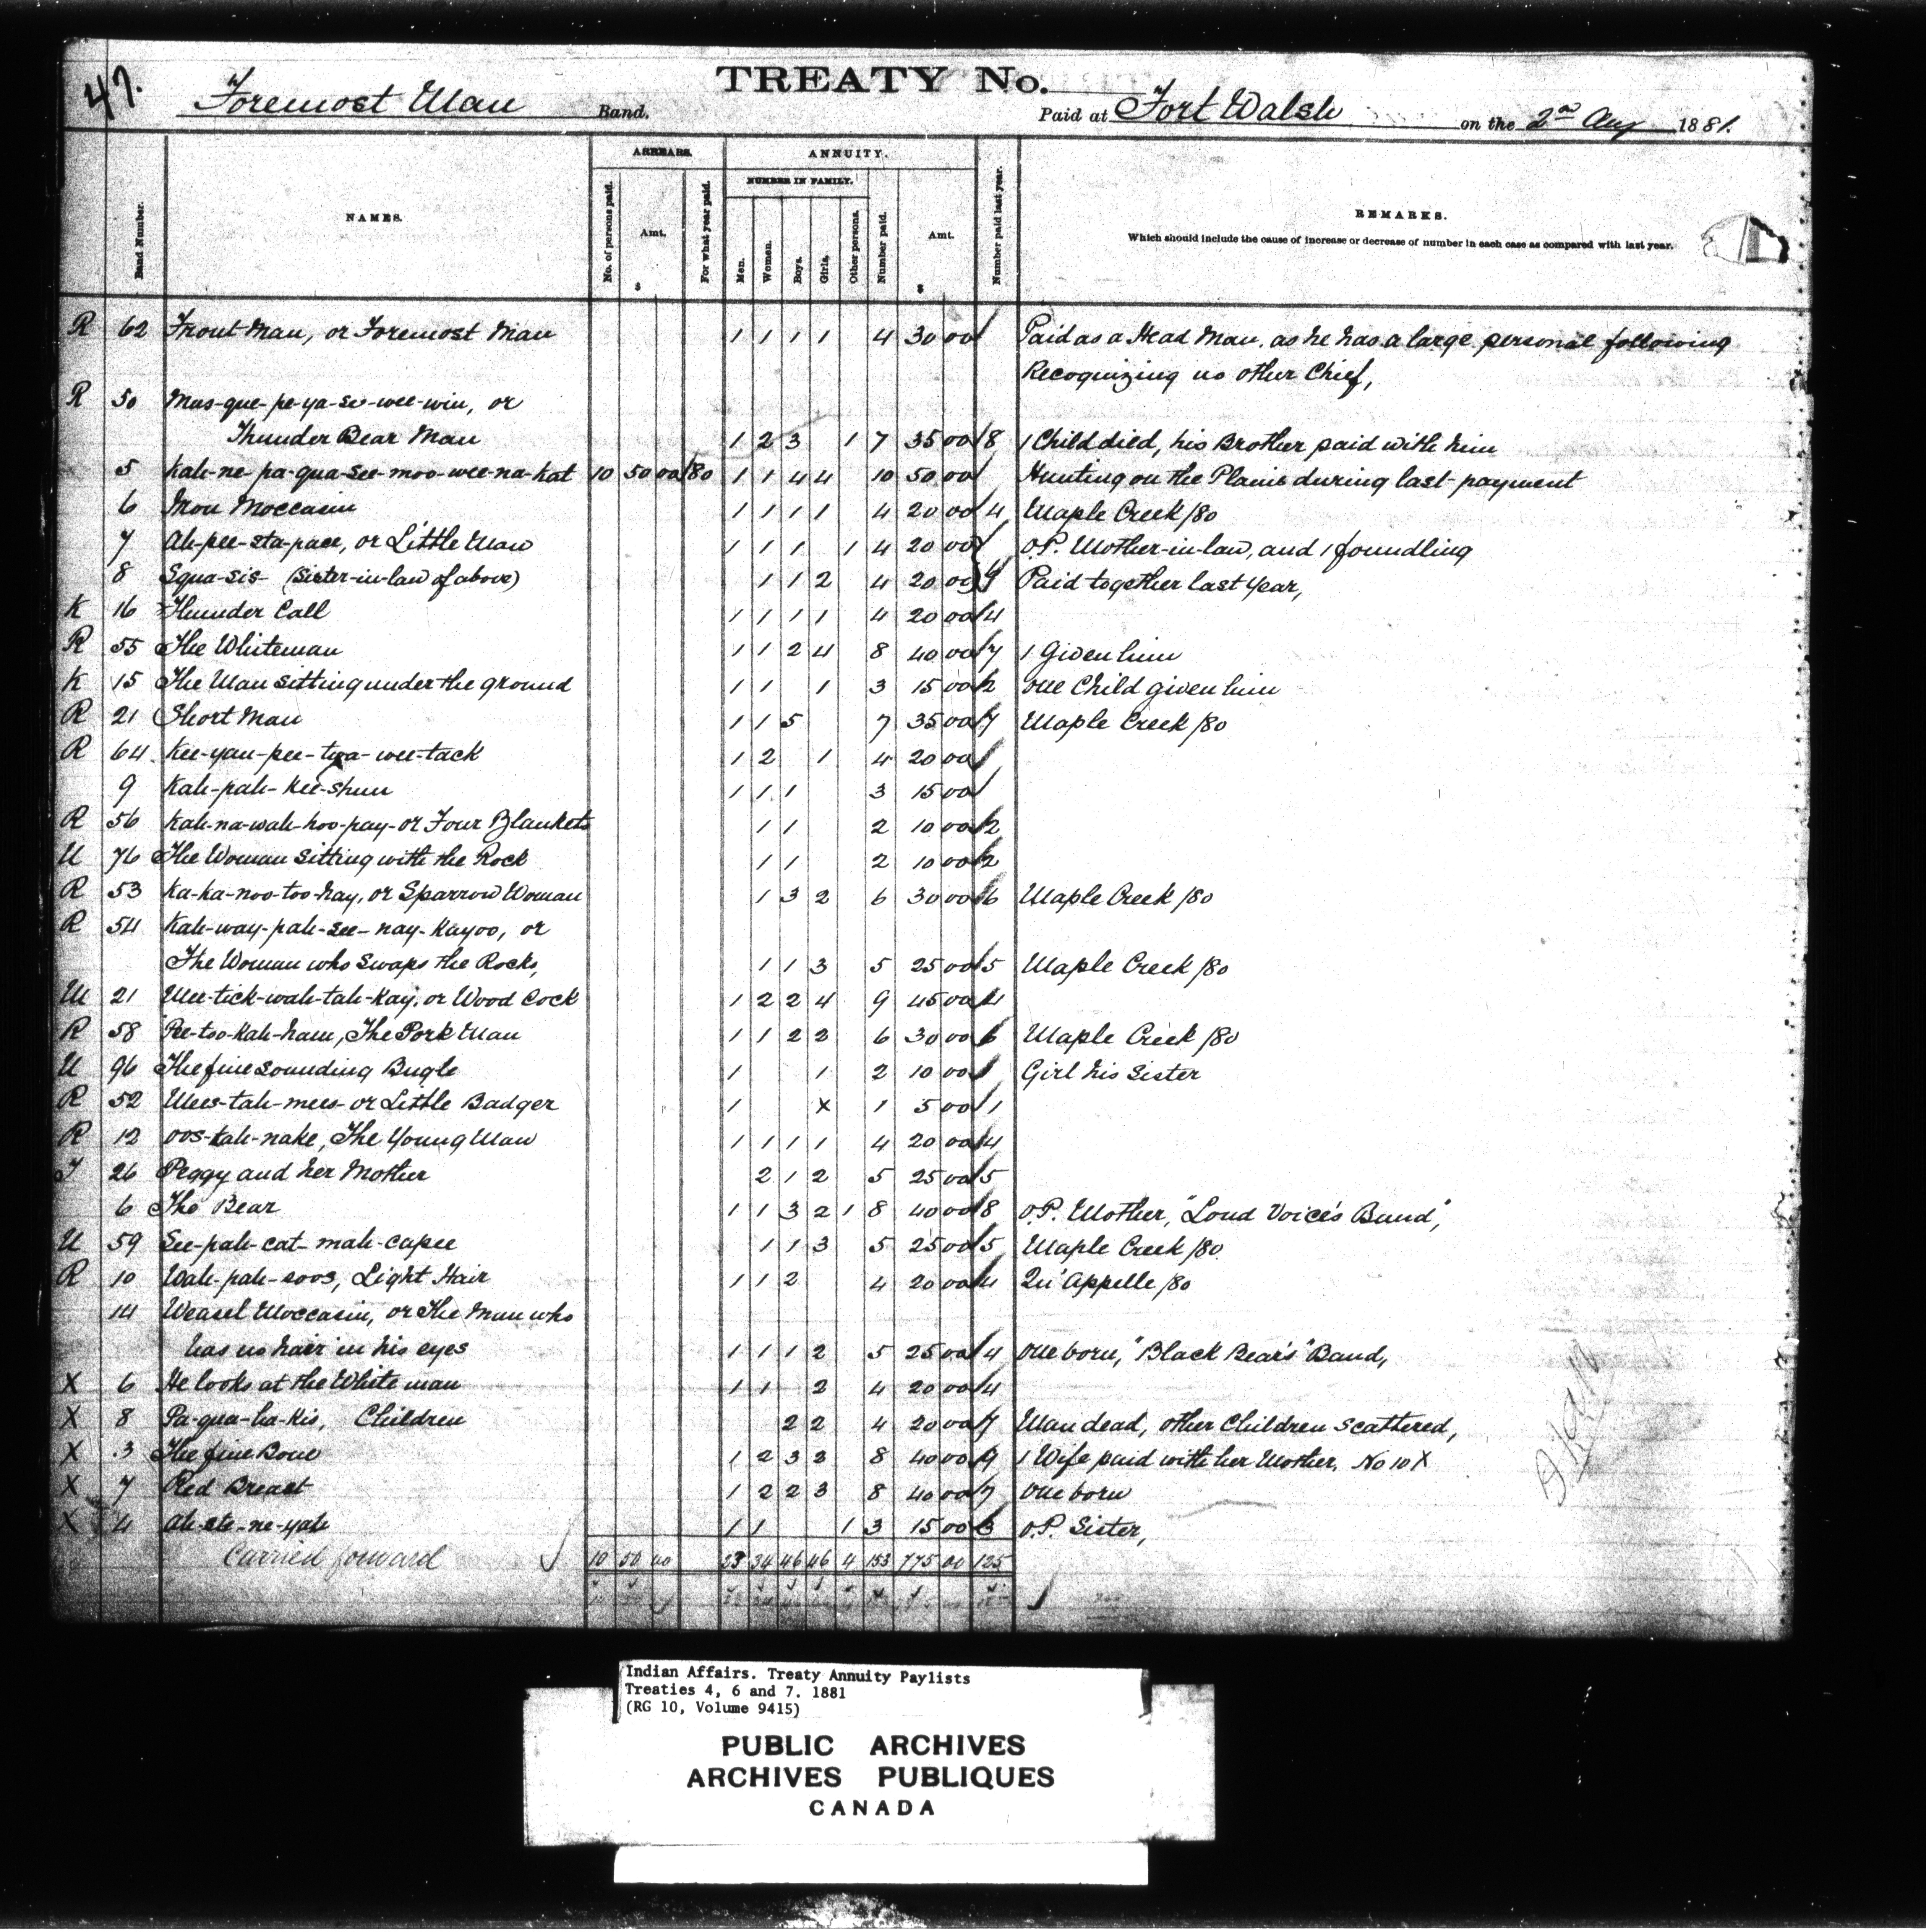 47.
TREATY No.
Foremost Man Band. Paid at Fort Walsh on the 2nd Aug 1881.
ARREARS. ANNUITY.
NUMBER IN FAMILY.
Band Number. NAMES. No. of persons paid. Amt. $ For what year paid. Men. Women. Boys. Girls. Other persons. Number paid. Amt. $ Number paid last year. REMARKS.
Which should include the cause of increase or decrease of number in each case as compared with last year.
R 62 Front Man, or Foremost Man 1 1 1 1 4 30 00 Paid as a Head Man, as he has a large personal following
Recognizing no other Chief,
R 50 Mus-que-pe-ya-si-wee-win, or
Thunder Bear Man 1 2 3 1 7 35 00 8 1 Child died, his Brother paid with him
5 Kah-ne-pa-qua-see-moo-wee-na-kat 10 50 00 /80 1 1 4 4 10 50 00 Hunting on the Plains during last payment
6 Iron Moccasin 1 1 1 1 4 20 00 4 Maple Creek /80
7 Ah-pee-sta-pace, or Little Man 1 1 1 1 4 20 00 O.P. Mother-in-law, and 1 foundling
8 Squa-sis- (Sister-in-law of above) 1 1 2 4 20 00 9 Paid together last year,
K 16 Thunder Call 1 1 1 1 4 20 00 4
R 55 The Whiteman 1 1 2 4 8 40 00 7 1 Given him
K 15 The Man Sitting under the ground 1 1 1 3 15 00 2 One Child given him
R 21 Short Man 1 1 5 7 35 00 7 Maple Creek /80
R 64 Kee-yan-pee-twa-wee-tack 1 2 1 4 20 00
9 Kah-pah-kee-shun 1 1 1 3 15 00
R 56 Kah-na-wah-hoo-pay-or Four Blankets 1 1 2 10 00 2
U 76 The Woman Sitting with the Rock 1 1 2 10 00 2
R 53 Ka-ka-noo-too-hay, or Sparrow Woman 1 3 2 6 30 00 6 Maple Creek /80
R 54 Kah-way-pah-see-nay-kayoo, or
The Woman who Swaps the Rocks, 1 1 3 5 25 00 5 Maple Creek /80
U 21 Mee-tick-wah-tah-kay, or Wood Cock 1 2 2 4 9 45 00 4
R 58 Pee-too-kah-ham, The Pork Man 1 1 2 2 6 30 00 6 Maple Creek /80
U 96 The fine sounding Bugle 1 1 2 10 00 1 Girl his Sister
R 52 Mees-tah-mees-or Little Badger 1 x 1 5 00 1
R 12 oos-kah-nake, The Young Man 1 1 1 1 4 20 00 4
J 26 Peggy and her Mother 2 1 2 5 25 00 5
6 The Bear 1 1 3 2 1 8 40 00 8 O.P. Mother, "Loud Voice's Band",
U 59 See-pah-cat-mah-capee 1 1 3 5 25 00 5 Maple Creek /80
R 10 Wah-pah-soos, Light Hair 1 1 2 4 20 00 4 Qu'Appelle /80
14 Weasel Moccasin, or The Man who
has no hair in his eyes 1 1 1 2 5 25 00 4 One born, "Black Bear's" Band,
X 6 He looks at the White man 1 1 2 4 20 00 4
X 8 Pa-qua-ha-kis, Children 2 2 4 20 00 7 Man dead, other Children scattered,
X 3 The fine Bow 1 2 3 2 8 40 00 9 1 Wife paid with her Mother, No 10 X
X 7 Red Breast 1 2 2 3 8 40 00 7 One born
X 4 Ah-ete-ne-yah 1 1 1 3 15 00 3 O.P. Sister,
Carried forward 10 50 00 23 34 46 46 4 153 775 00 125
Indian Affairs. Treaty Annuity Paylists
Treaties 4, 6 and 7. 1881
(RG 10, Volume 9415)
PUBLIC ARCHIVES
ARCHIVES PUBLIQUES
CANADA